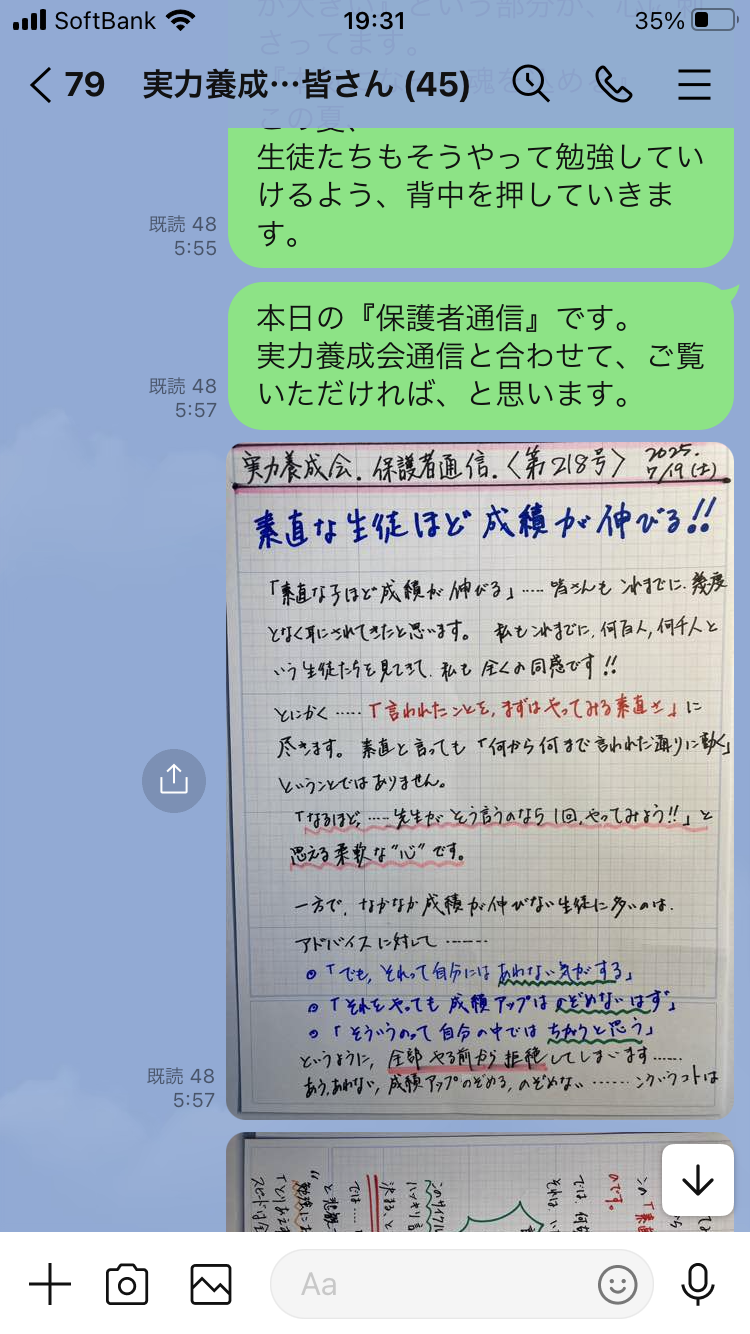 SoftBank 19:31 35%
79 実力養成…皆さん (45)
この夏、
生徒たちもそうやって勉強してい
けるよう、背中を押していきま
す。
既読 48
5:55
本日の『保護者通信』です。
実力養成会通信と合わせて、ご覧
いただければ、と思います。
既読 48
5:57
実力養成会.保護者通信.〈第218号〉 2025.
7/19(土)
素直な生徒ほど成績が伸びる!!
「素直な子ほど成績が伸びる」…… 皆さんもこれまでに、幾度
となく耳にされてきたと思います。 私もこれまでに、何百人,何千人と
いう生徒たちを見てきて、私も全くの同感です!!
とにかく……「言われたことを、まずはやってみる素直さ」に
尽きます。素直と言っても「何から何まで言われた通りに動く」
ということではありません。
「なるほど、……先生がそう言うのなら1回、やってみよう!!」と
思える柔軟な“心”です。
一方で、なかなか成績が伸びない生徒に多いのは、
アドバイスに対して………
◎「でも、それって自分にはあわない気がする」
◎「それをやっても成績アップはのぞめないはず」
◎「そういうのって自分の中ではちがうと思う」
というように、全部やる前から拒絶してしまいます……
あう,あわない,成績アップのぞめる,のぞめない………こういうコトは
既読 48
5:57
この「素
のです。
では、何
それは、い
このサイクル
ハッキリ言
決まる、と
では……
Aa